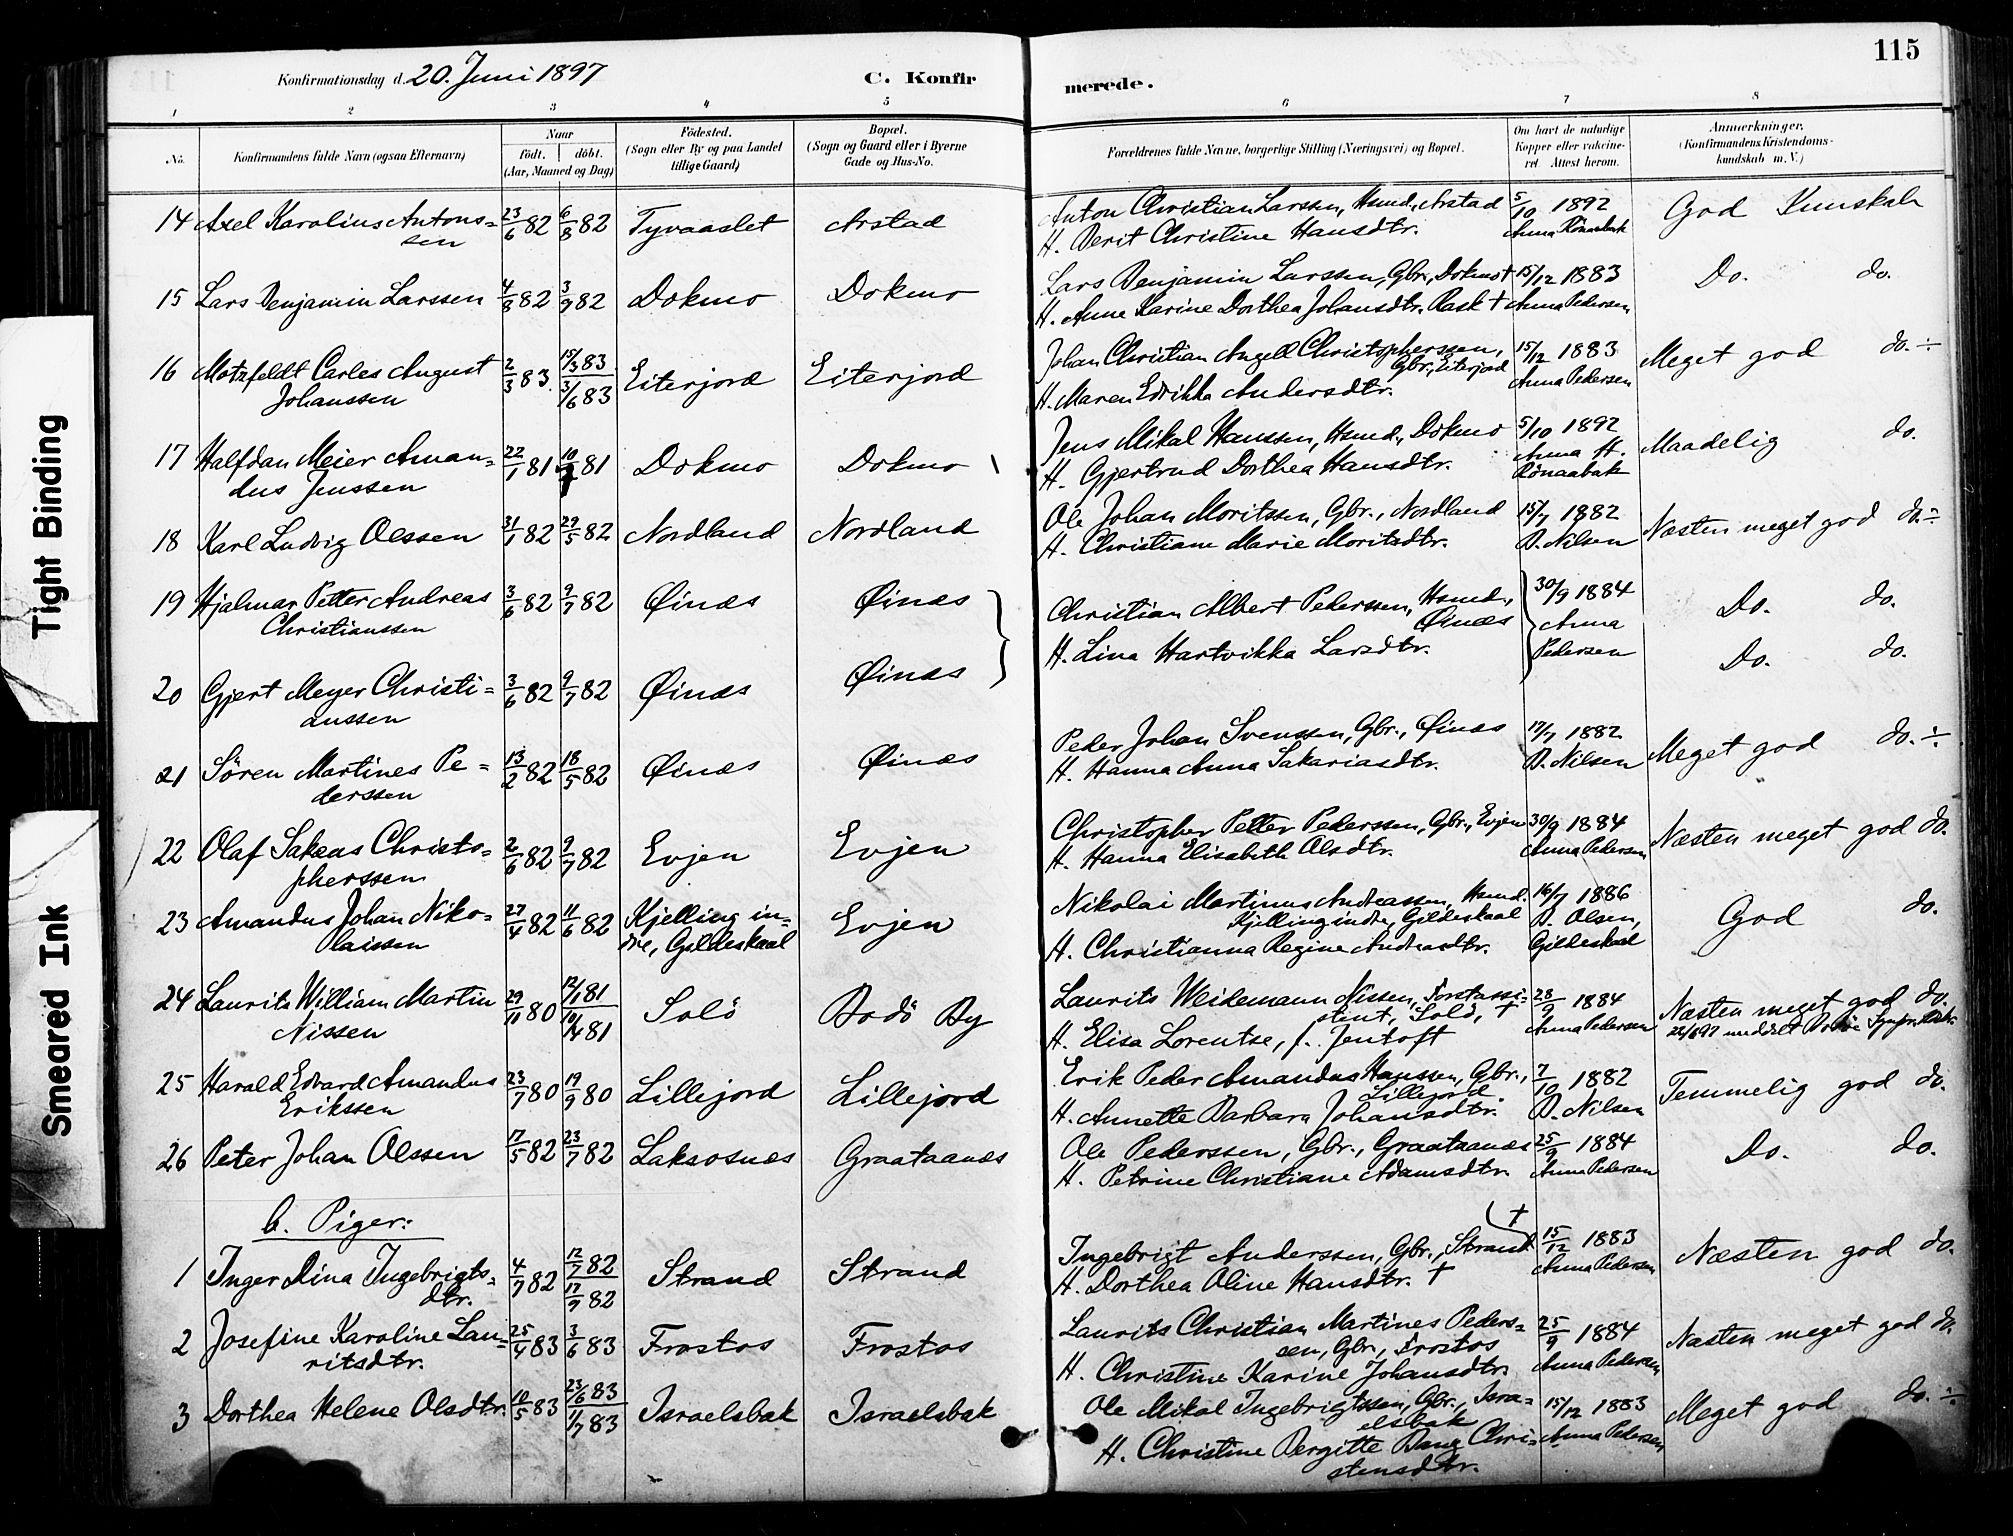 115
Konfirmationsdag d. 20. Juni 1897
C. Konfirmerede.
1 2 3 4 5 6 7 8
No. Konfirmandens fulde Navn (ogsaa Efternavn) Naar født. døbt. (Aar, Maaned og Dag) Fødested. (Sogn eller By og paa Landet tillige Gaard) Bopæl. (Sogn og Gaard eller i Byerne Gade og Hus-No. Forældrenes fulde Navne, borgerlige Stilling (Næringsvei) og Bopæl. Om havt de naturlige Kopper eller vaccineret Attest herom. Anmærkninger. (Konfirmandens Kristendomskundskab m. V.)
14 Axel Karolius Antons= 23/6 82 6/8 82 Tyvaaslet Arstad Anton Christian Larssen, Husmd., Arstad 5/10 1892 God Kunskab
sen H. Berit Christine Hansdtr. Anna Rönaabak
15 Lars Benjamin Larssen 4/8 82 3/9 82 Dokmo Dokmo Lars Benjamin Larssen, Gbr., Dokmo † 15/12 1883 Do. do.
H. Anne Karine Dorthea Johansdtr. Rask † Anna Pedersen
16 Motzfeldt Carles August 2/3 83. 15/3 83 Eiterjord Eiterjord Johan Christian Angell Christopherssen, 15/12 1883 Meget god do. ÷
Johanssen 3/6 83 Gbr., Eiterjord Anna Pedersen
H. Maren Edrikka Andersdtr.
17 Halfdan Meier Aman= 22/1 81 10/ 81 Dokmo Dokmo Jens Mikal Hanssen, Husmd., Dokmo 5/10 1892 Maadelig do.
dus Jenssen H. Gjertrud Dorthea Hansdtr. Anna H. Rönaabak
18 Karl Ludvig Olssen 31/1 82 29/5 82 Nordland Nordland Ole Johan Moritssen, Gbr., Nordland 15/7 1882 Næsten meget god do. ÷
H. Christiane Marie Moritsdtr. B. Nilsen
19 Hjalmar Petter Andreas 3/6 82 9/7 82 Øinæs Øinæs Christian Albert Pederssen, Husmd., 30/9 1884 Do. do.
Christianssen Øinæs Anna
H. Lina Hartvikka Larsdtr. Pedersen
20 Gjert Meyer Christi= 3/6 82 9/7 82 Øinæs Øinæs Do. do.
anssen
21 Sören Martines Pe= 13/2 82 18/5 82 Øinæs Øinæs Peder Johan Svenssen, Gbr., Øinæs 17/7 1882 Meget god do. ÷
derssen H. Hanna Anna Sakariasdtr. B. Nilsen
22 Olaf Sakæus Christo= 2/6 82 9/7 82 Evjen Evjen Christopher Petter Pederssen, Gbr., Evjen 30/9 1884 Næsten meget god do.
pherssen H. Hanna Elisabeth Olsdtr. Anna Pedersen
23 Amandus Johan Niko= 27/4 82 11/6 82 Kjelling in= Evjen Nikolai Martinus Andreassen, Husmd. 16/7 1886 God do.
laissen dre, Gildeskaal Kjelling indre, Gildeskaal B. Olsen,
H. Christianna Regine Andreasdtr. Gildeskaal
24 Laurits William Martin 29/11 80 12/1 81 Solö Bodö By Laurits Weidemann Nissen, Forstassi= 28/9 1884 Næsten meget god do.
Nissen 10/4 81 stent, Solö, † Anna Pedersen
H. Elisa Lorentse, f. Jentoft
25 Harald Edvard Amandus 23/7 80 19/9 80 Lillejord Lillejord Erik Peder Amandus Hanssen, Gbr., 7/10 1882 Temmelig god do.
Erikssen Lillejord.
H. Annette Barbara Johansdtr. B. Nilsen
26 Peter Johan Olssen 17/5 82 23/7 82 Laksosnæs Graataanæs Ole Pederssen, Gbr., Graataanæs 25/9 1884 Do. do.
H. Petrine Christiane Adamsdtr. Anna Pedersen
b. Piger:
1 Inger Dina Ingebrigts= 4/7 82 12/7 82 Strand Strand Ingebrigt Anderssen, Gbr., Strand † 15/12 1883 Næsten god do.
dtr. 17/9 82 H. Dorthea Oline Hansdtr. † Anna Pedersen
2 Josefine Karoline Lau= 25/4 83 3/6 83 Frostos Frostos Laurits Christian Martines Peders= 25/9 1884 Næsten meget god do.
ritsdtr. sen, Gbr., Frostos Anna Pedersen
H. Christine Karine Johansdtr.
3 Dorthea Helene Olsdtr. 10/5 83 23/6 83 Israelsbak Israelsbak Ole Mikal Ingebrigtssen, Gbr., Isra= 15/12 1883 Meget god do. ÷
1/7 83 elsbak
H. Christine Bergitte Bang Chri= Anna Pedersen
stensdtr.
Tight Binding
Smeared Ink